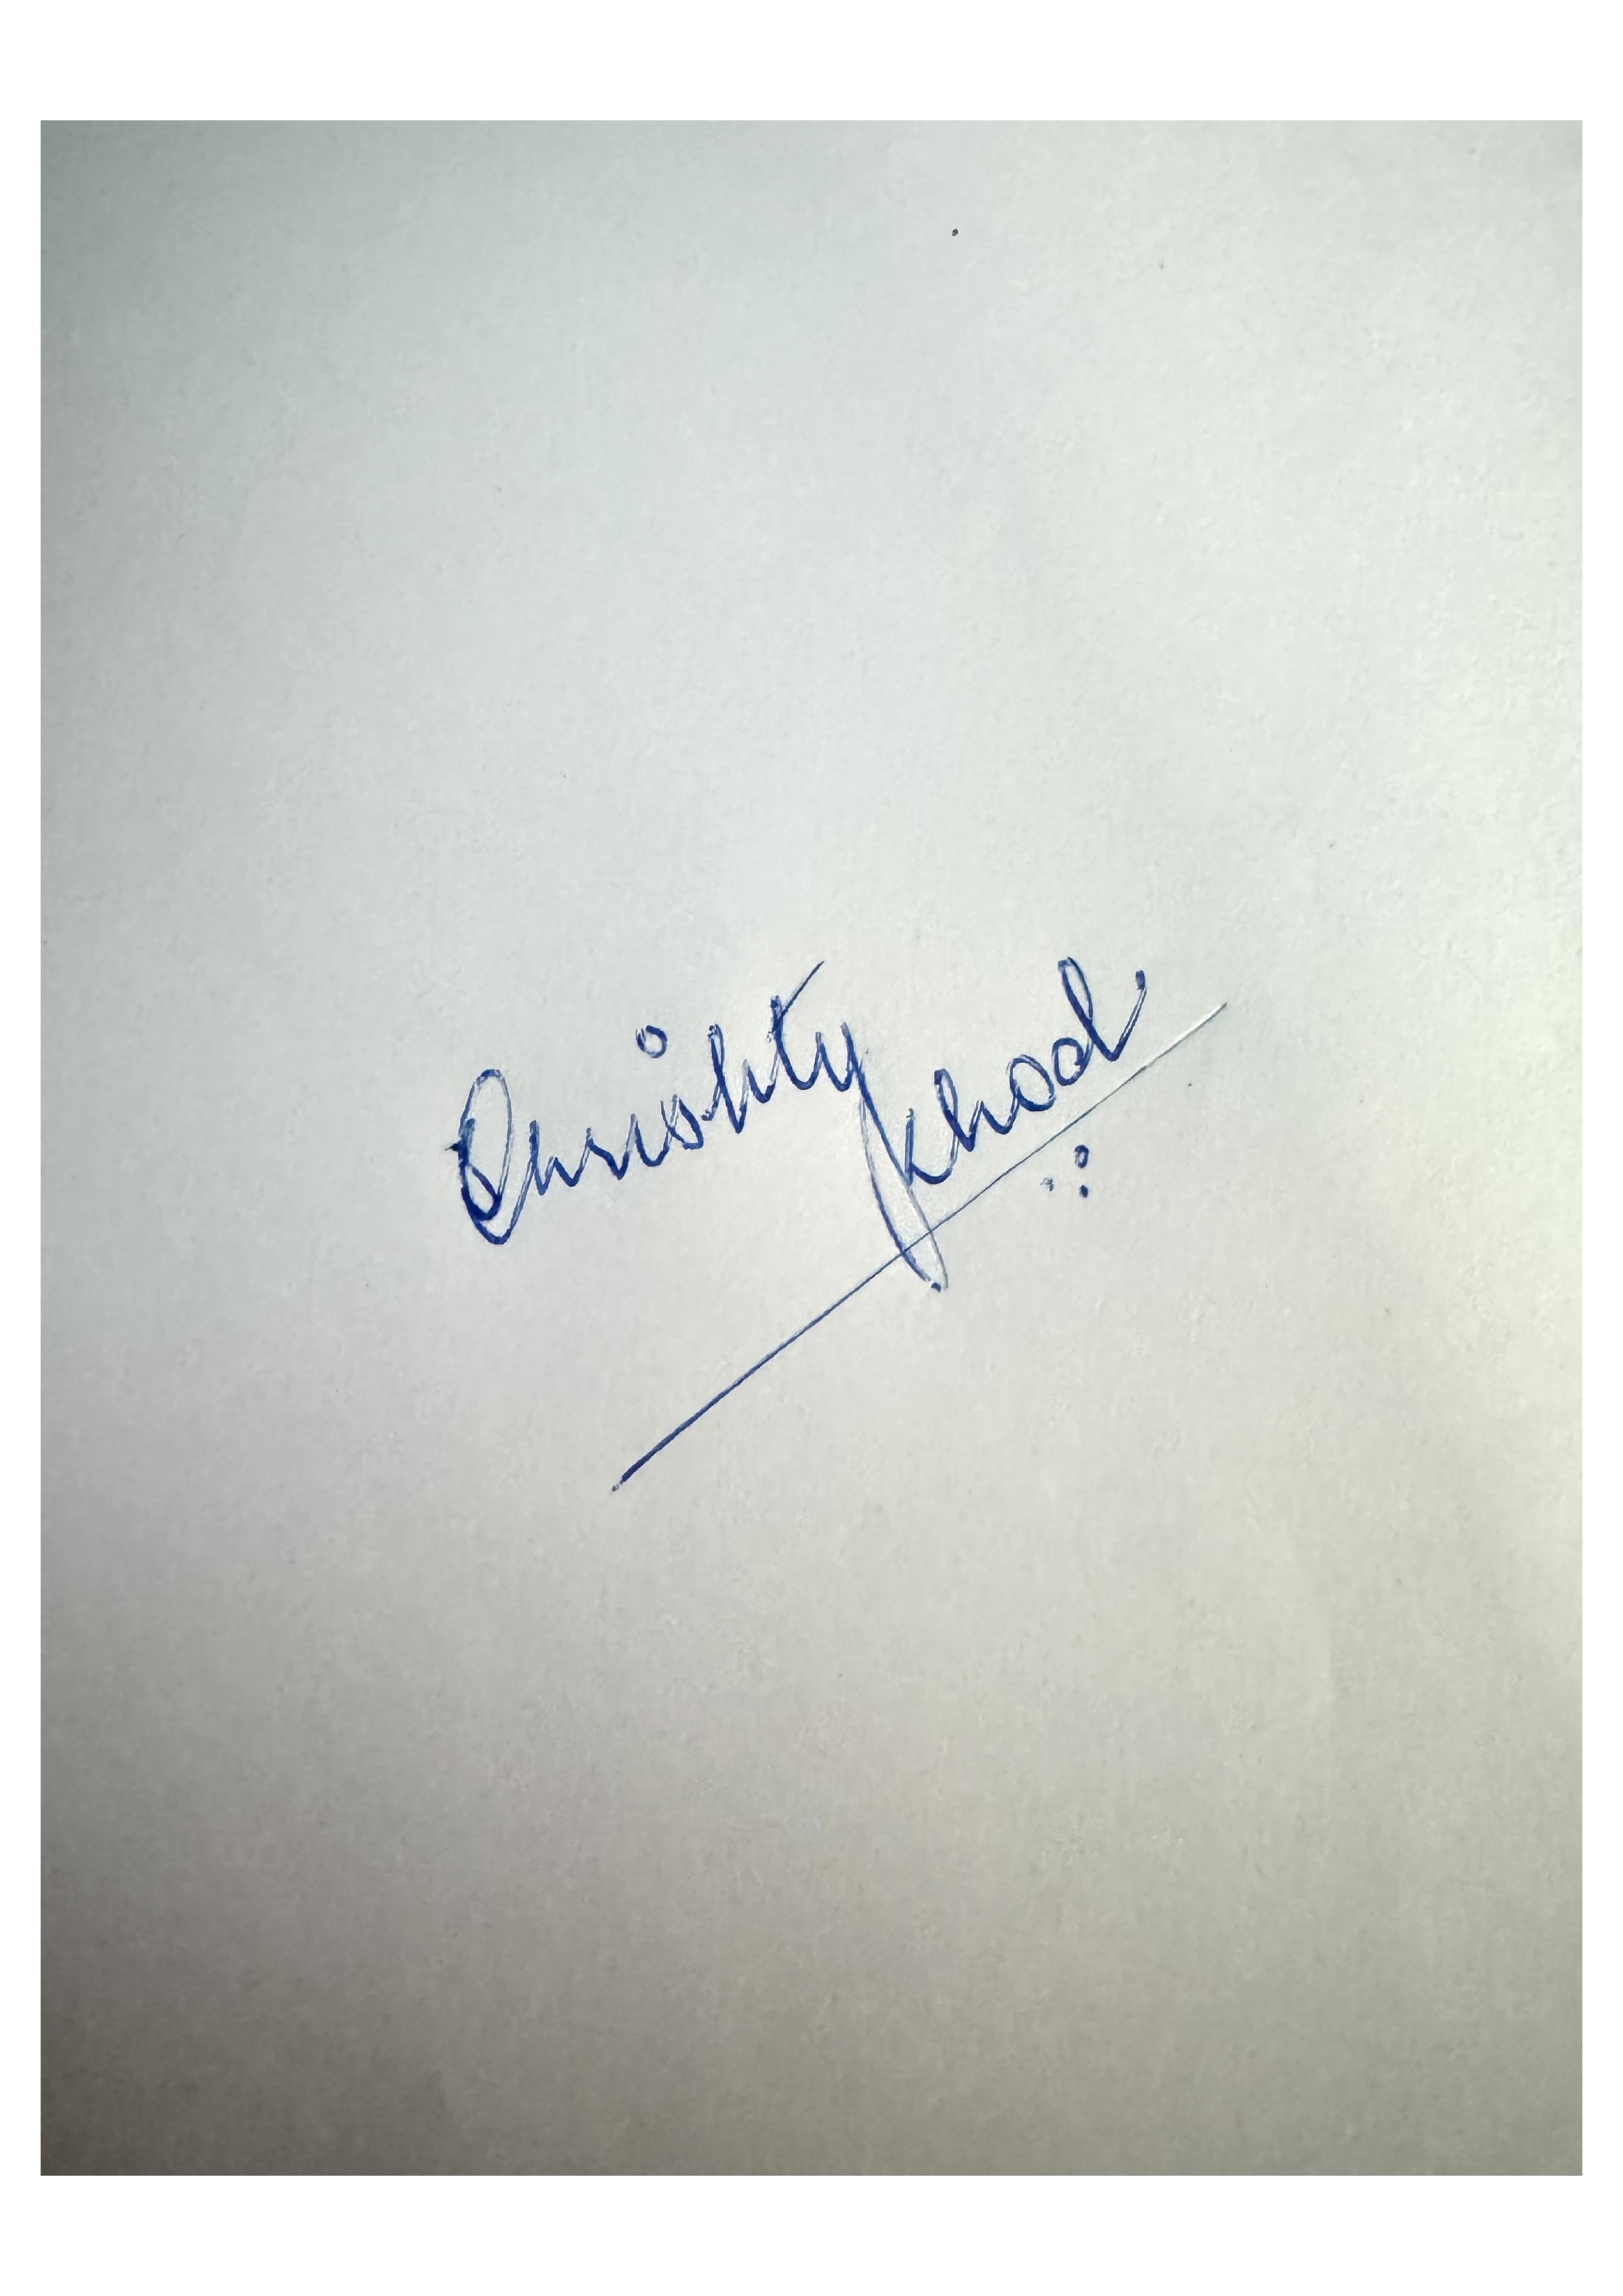 Chrishty Khod